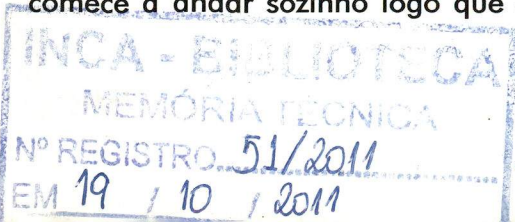 comece a andar sozinho logo que
INCA - BIBLIOTECA
MEMÓRIA TÉCNICA
Nº REGISTRO 51/2011
EM 19 / 10 / 2011